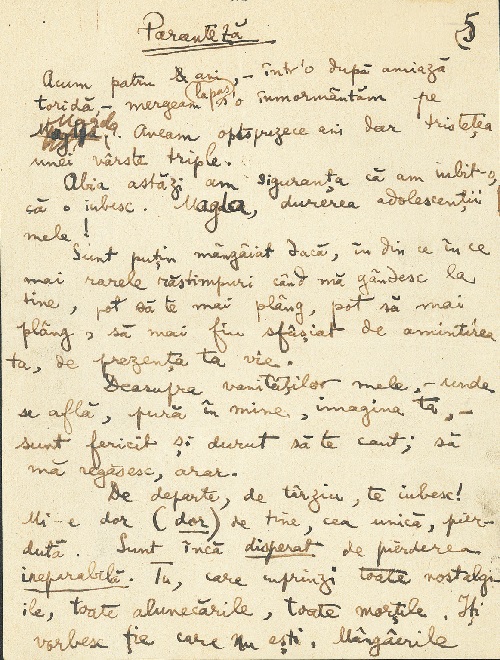 Paranteză
5
Acum patru ani, - într'o după amiază
toridă, - mergeam s'o înmormântăm pe
Magda. Aveam optsprezece ani dar tristețea
unei vârste triple.
Abia astăzi am siguranța că am iubit-o,
că o iubesc. Magda, durerea adolescenții
mele!
Sunt puțin mângâiat dacă, în din ce în ce
mai rarele răstimpuri când mă gândesc la
tine, pot să te mai plâng, pot să mai
plâng, să mai fiu sfâșiat de amintirea
ta, de prezența ta vie.
Deasupra vanităților mele, - unde
se află, pură în mine, imagina ta, -
sunt fericit și durut să te caut; să
mă regăsesc, arar.
De departe, de târziu, te iubesc!
Mi-e dor (dor) de tine, cea unică, pier-
dută. Sunt încă disperat de pierderea
ireparabilă. Tu, care cuprinzi toate nostalgi
ile, toate alunecările, toate morțile. Îți
vorbesc ție care nu ești. Mângâierile